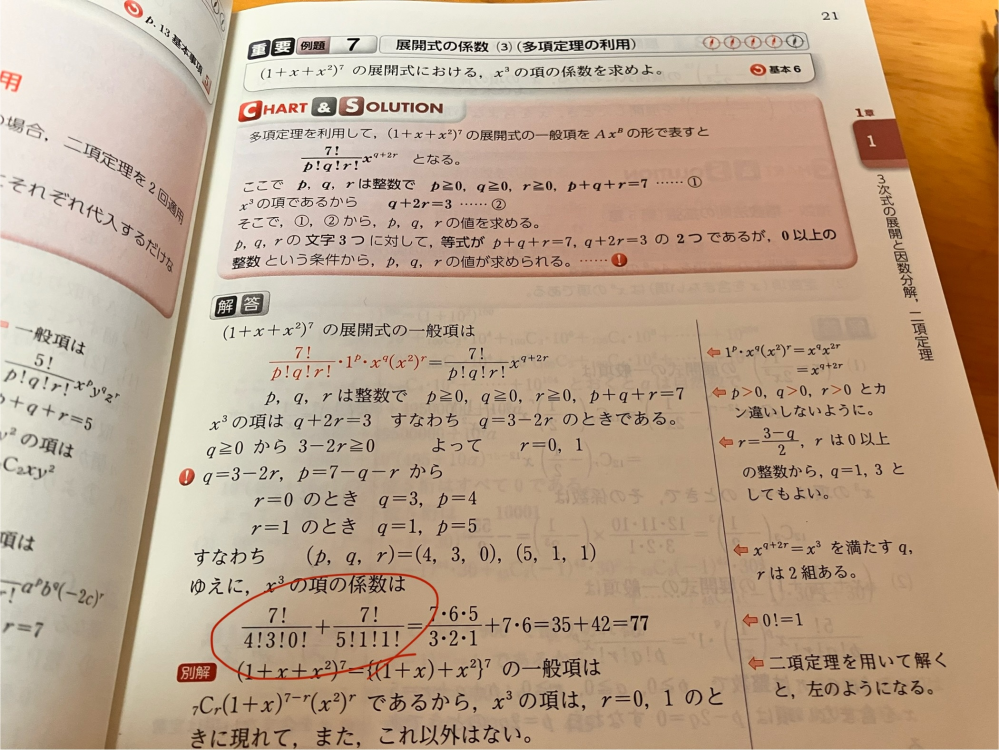 p.13 基本事項
用
の場合，二項定理を2回適用
それぞれ代入するだけな
一般項は
5!/(p!q!r!) x^p y^q z^r
p+q+r=5
y²の項は
C₂xy²
項は
a^p b^q(-2c)^r
r=7
21
重要 例題 7 展開式の係数 (3) (多項定理の利用)
(1+x+x²)⁷ の展開式における，x³の項の係数を求めよ。
基本6
CHART & SOLUTION
多項定理を利用して，(1+x+x²)⁷の展開式の一般項をAx^Bの形で表すと
7!/(p!q!r!) x^(q+2r) となる。
ここで p, q, rは整数で p≧0, q≧0, r≧0, p+q+r=7 ……①
x³の項であるから q+2r=3 ……②
そこで，①，②から，p, q, rの値を求める。
p, q, rの文字3つに対して，等式が p+q+r=7, q+2r=3 の2つであるが，0以上の
整数という条件から，p, q, rの値が求められる。……!
解答
(1+x+x²)⁷ の展開式の一般項は
7!/(p!q!r!)・1^p・x^q(x²)^r=7!/(p!q!r!) x^(q+2r)
p, q, rは整数で p≧0, q≧0, r≧0, p+q+r=7
x³の項は q+2r=3 すなわち q=3-2r のときである。
q≧0 から 3-2r≧0 よって r=0, 1
! q=3-2r, p=7-q-r から
r=0 のとき q=3, p=4
r=1 のとき q=1, p=5
すなわち (p, q, r)=(4, 3, 0), (5, 1, 1)
ゆえに，x³の項の係数は
7!/(4!3!0!)+7!/(5!1!1!)=7・6・5/(3・2・1)+7・6=35+42=77
別解 (1+x+x²)⁷={(1+x)+x²}⁷ の一般項は
₇Cᵣ(1+x)^(7-r)(x²)^r であるから，x³の項は，r=0, 1 のと
きに現れて，また，これ以外はない。
⇐1^p・x^q(x²)^r=x^q x^(2r)
=x^(q+2r)
⇐p>0, q>0, r>0 とカ
ン違いしないように。
⇐r=(3-q)/2, rは0以上
の整数から，q=1, 3 と
してもよい。
⇐x^(q+2r)=x³ を満たす q,
rは2組ある。
⇐0!=1
⇐二項定理を用いて解く
と，左のようになる。
1章
1
3次式の展開と因数分解，二項定理